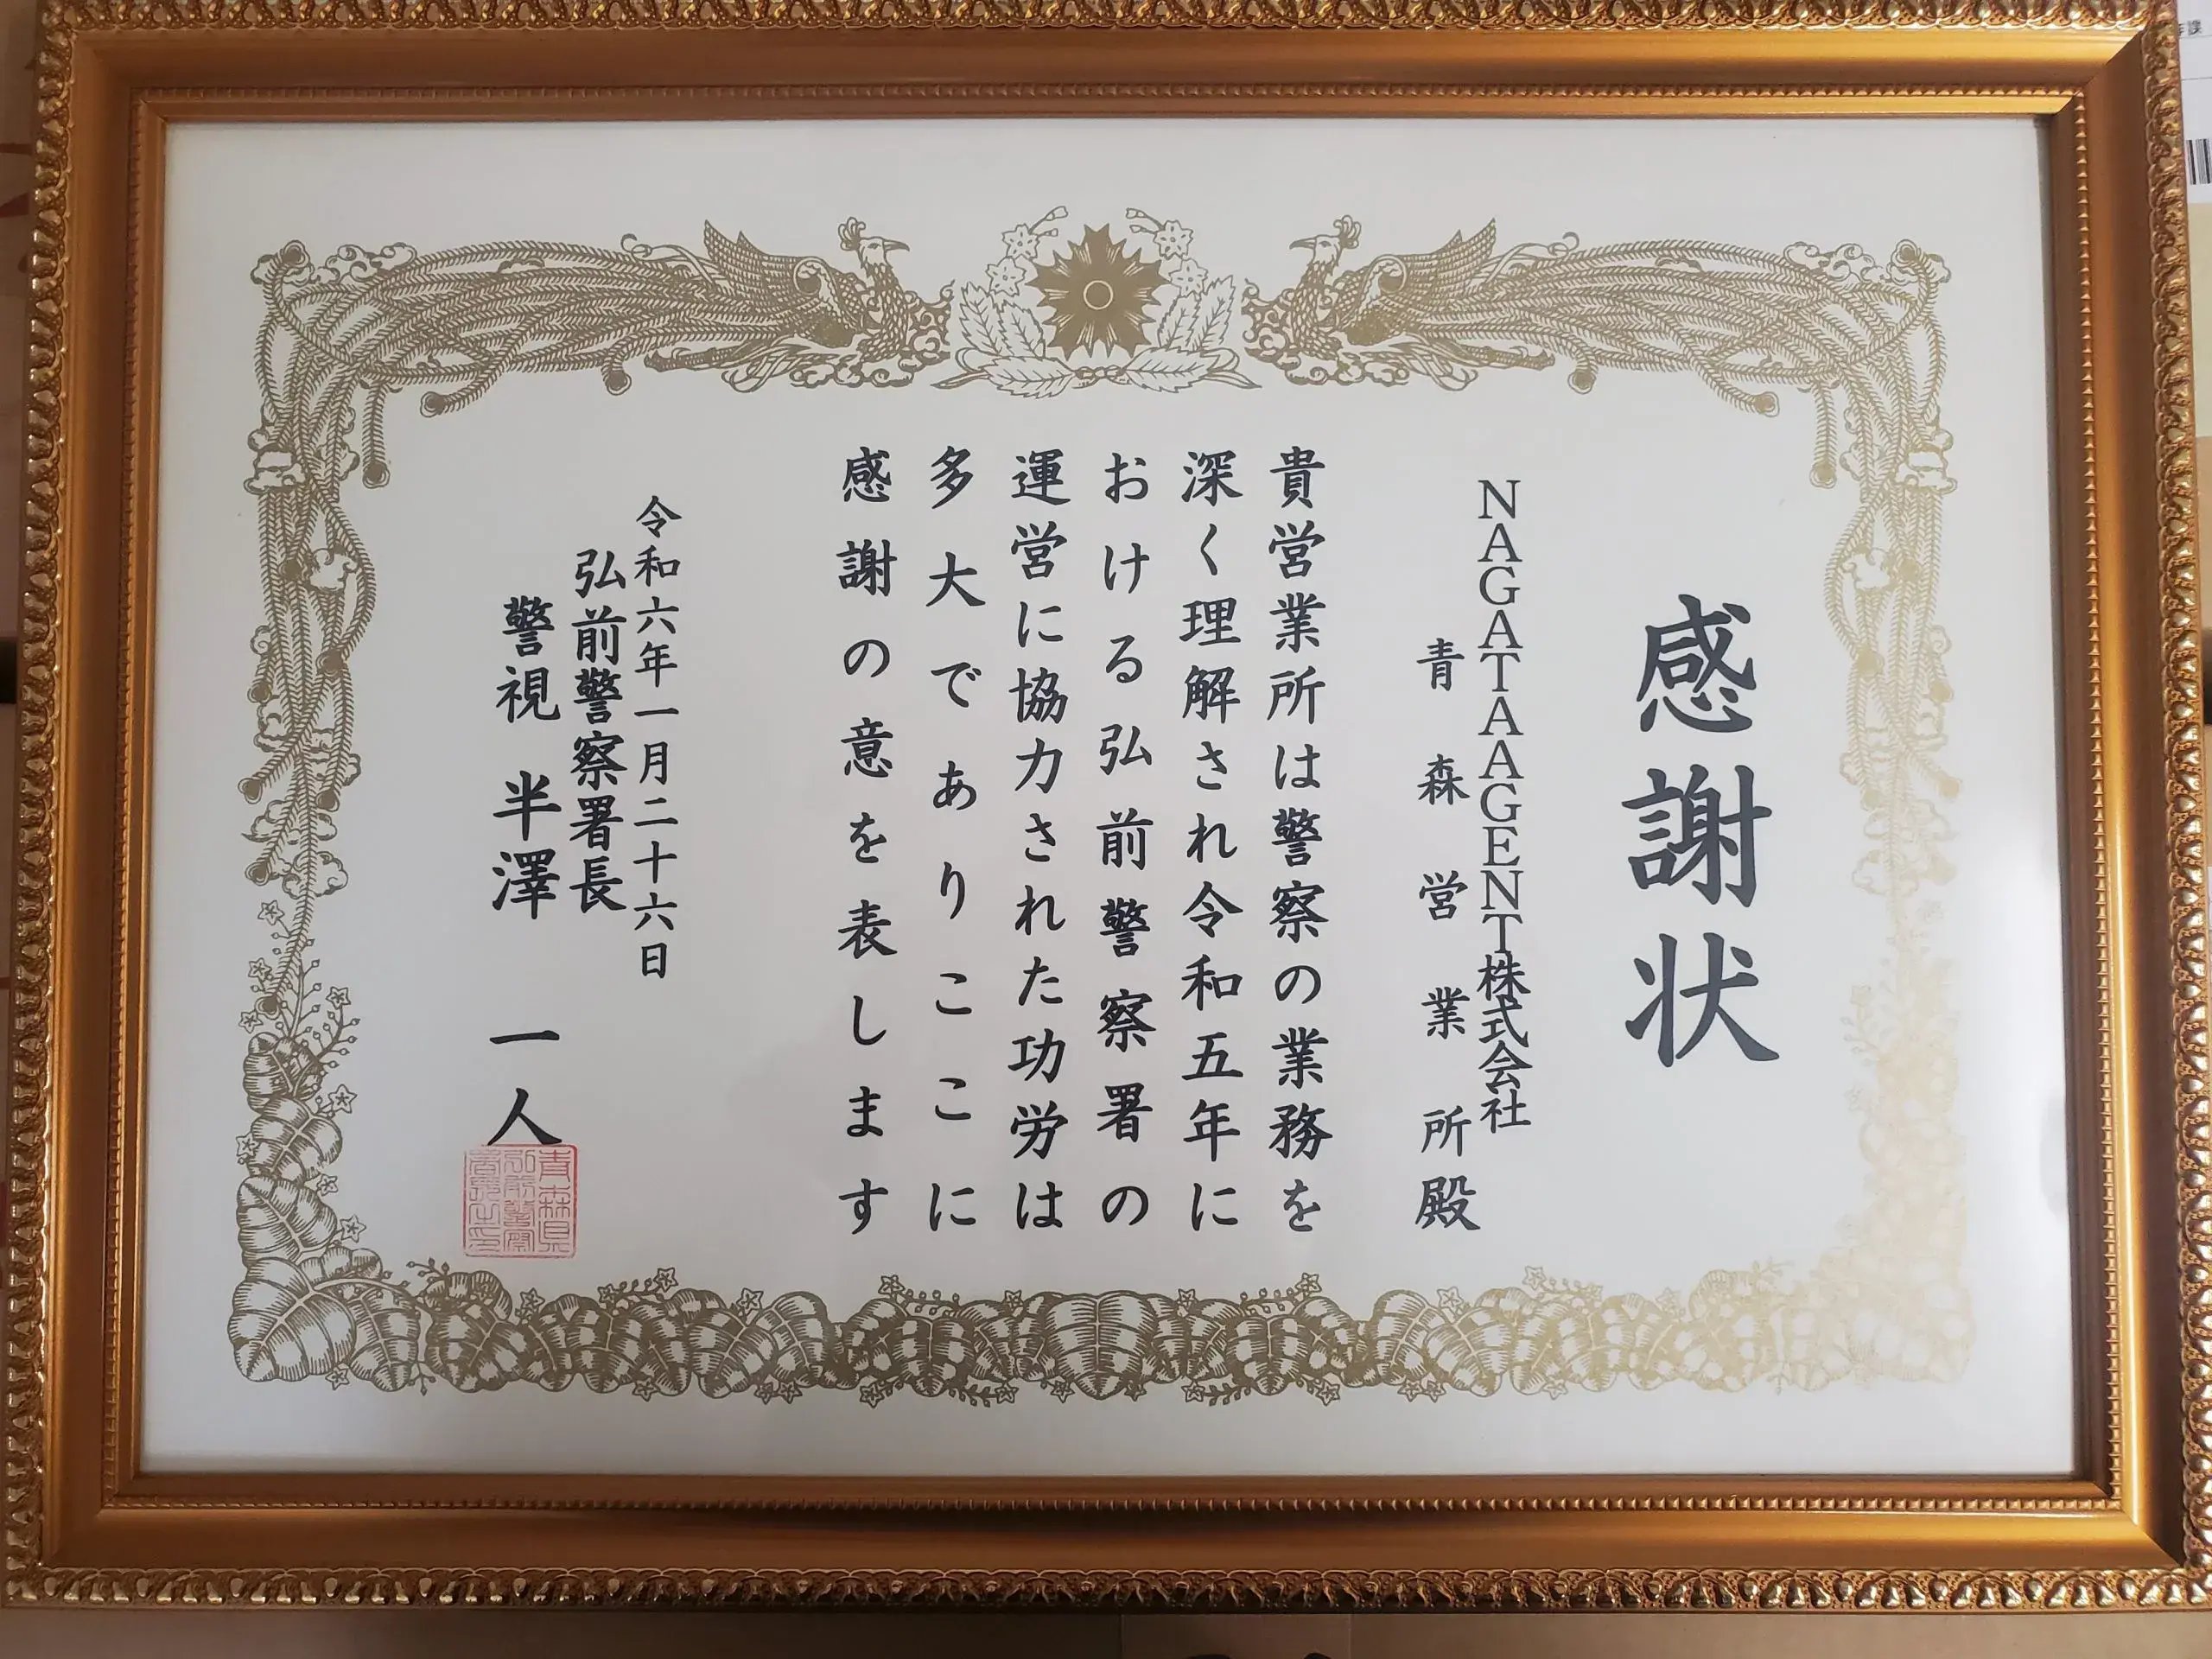 感謝状
NAGATAAGENT株式会社
青森営業所殿
貴営業所は警察の業務を
深く理解され令和五年に
おける弘前警察署の
運営に協力された功労は
多大でありここに
感謝の意を表します
令和六年一月二十六日
弘前警察署長
警視 半澤 一人